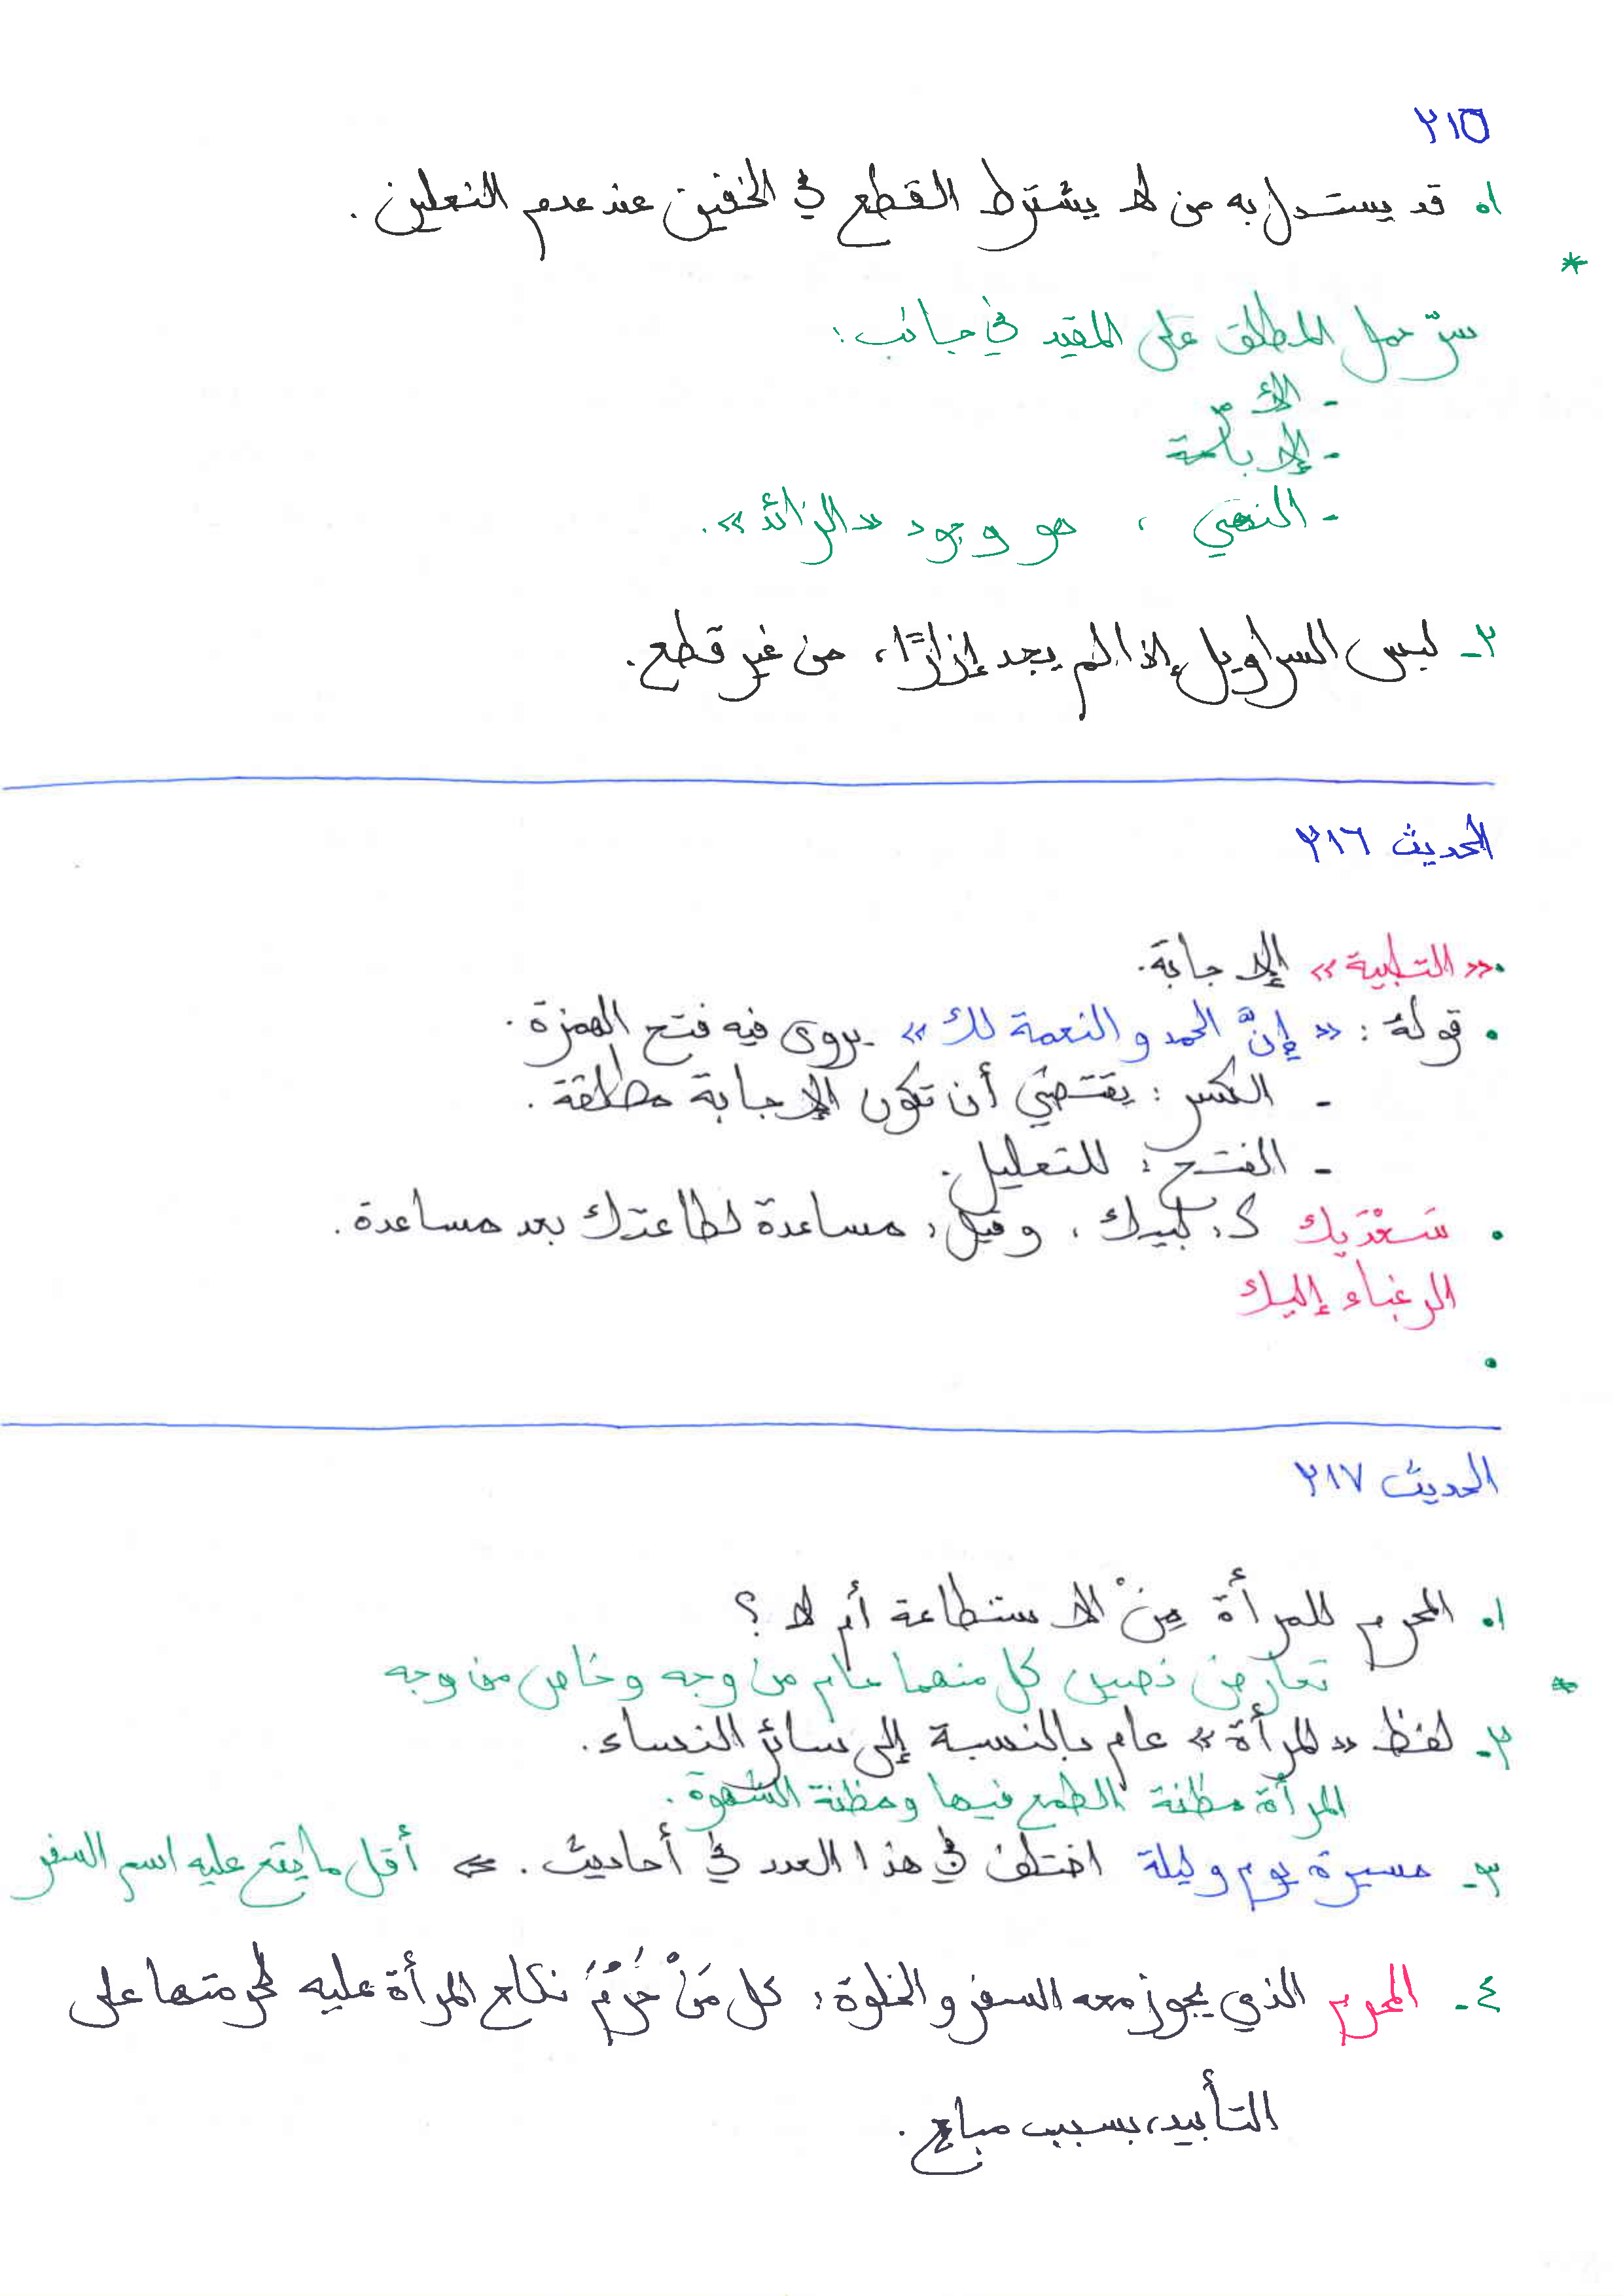 ٢١٥
١. قد يستدل به من لا يشترط القطع في الخفين عند عدم النعلين.
*
سرّ حمل المطلق على المقيد في جانب:
- الأمر
- الإباحة
- النهي ، هو وجود «الزائد».
٢- لبس السراويل إذا لم يجد إزارًا، من غير قطع.
الحديث ٢١٦
• «التلبية» الإجابة.
• قوله: «إنَّ الحمد والنعمة لك» يروى فيه فتح الهمزة.
- الكسر: يقتضي أن تكون الإجابة مطلقة.
- الفتح: للتعليل.
• سَعْدَيك ك: لبيك، وقيل: مساعدة لطاعتك بعد مساعدة.
الرغباء إليك
•
الحديث ٢١٧
١. المحرم للمرأة مِنْ الاستطاعة أم لا؟
* تعارض نصين كل منهما عام من وجه وخاص من وجه
٢- لفظ «المرأة» عام بالنسبة إلى سائر النساء.
المرأة مظنة الطمع فيها ومظنة الشهوة.
٣- مسيرة يوم وليلة اختلف في هذا العدد في أحاديث. => أقل ما يقع عليه اسم السفر
٤- المحرم الذي يجوز معه السفر والخلوة: كل مَنْ حَرُمَ نكاح المرأة عليه لحرمتها على
التأبيد، بسبب مباح.